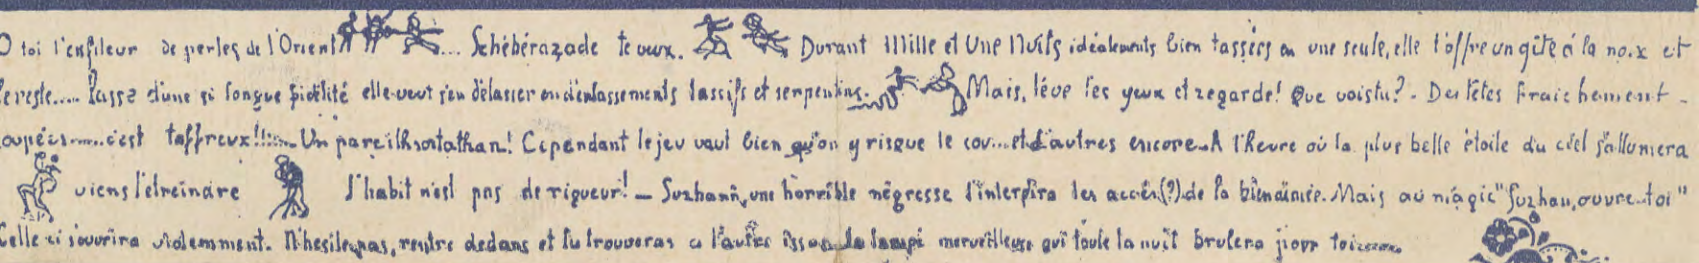 O toi l'enfileur de perles de l'Orient ... Schéhérazade te veux. Durant Mille et Une Nuits idéalements bien tassées en une seule, elle t'offre un gîte à la noix et
le reste..... Lasse d'une si longue fidélité elle veut s'en délasser en d'enlassements lassifs et serpentins. Mais, lève les yeux et regarde! Que vois tu? - Des têtes fraichement -
coupées......c'est taffreux!!!... Un pareil Cependant le jeu vaut bien qu'on y risque le cou...et d'autres encore. A l'heure où la plus belle étoile du ciel s'allumera
viens l'etreindre l'habit n'est pas de rigueur! - Suzhann, une horrible négresse t'interdira les accès(?) de la bienaimée. Mais au magic "Suzhan, ouvre-toi"
Celle ci s'ouvrira violemment. N'hesite pas, rentre dedans et tu trouveras a l'autre la lampe merveilleuse qui toute la nuit brulera pour toi